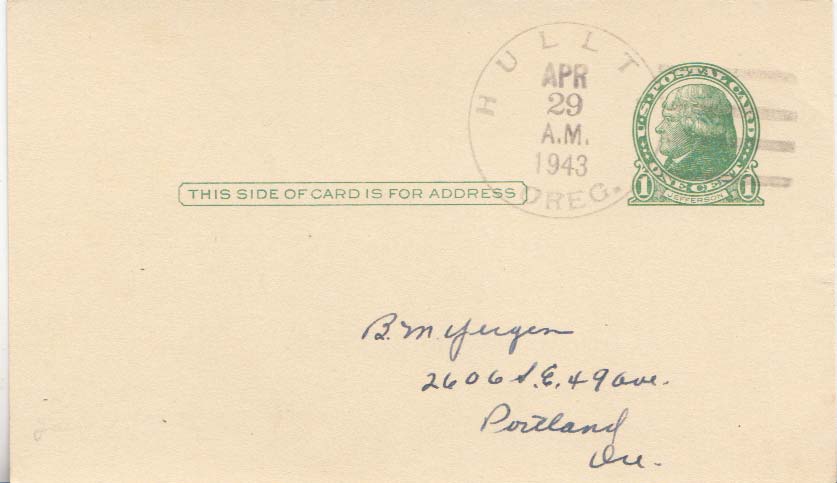 HULLT
APR
29
A.M.
1943
OREG.
U.S. POSTAL CARD
ONE CENT
1 1
JEFFERSON
THIS SIDE OF CARD IS FOR ADDRESS
B. M. Yergen
2606 S.E. 49 Ave.
Portland
Ore.